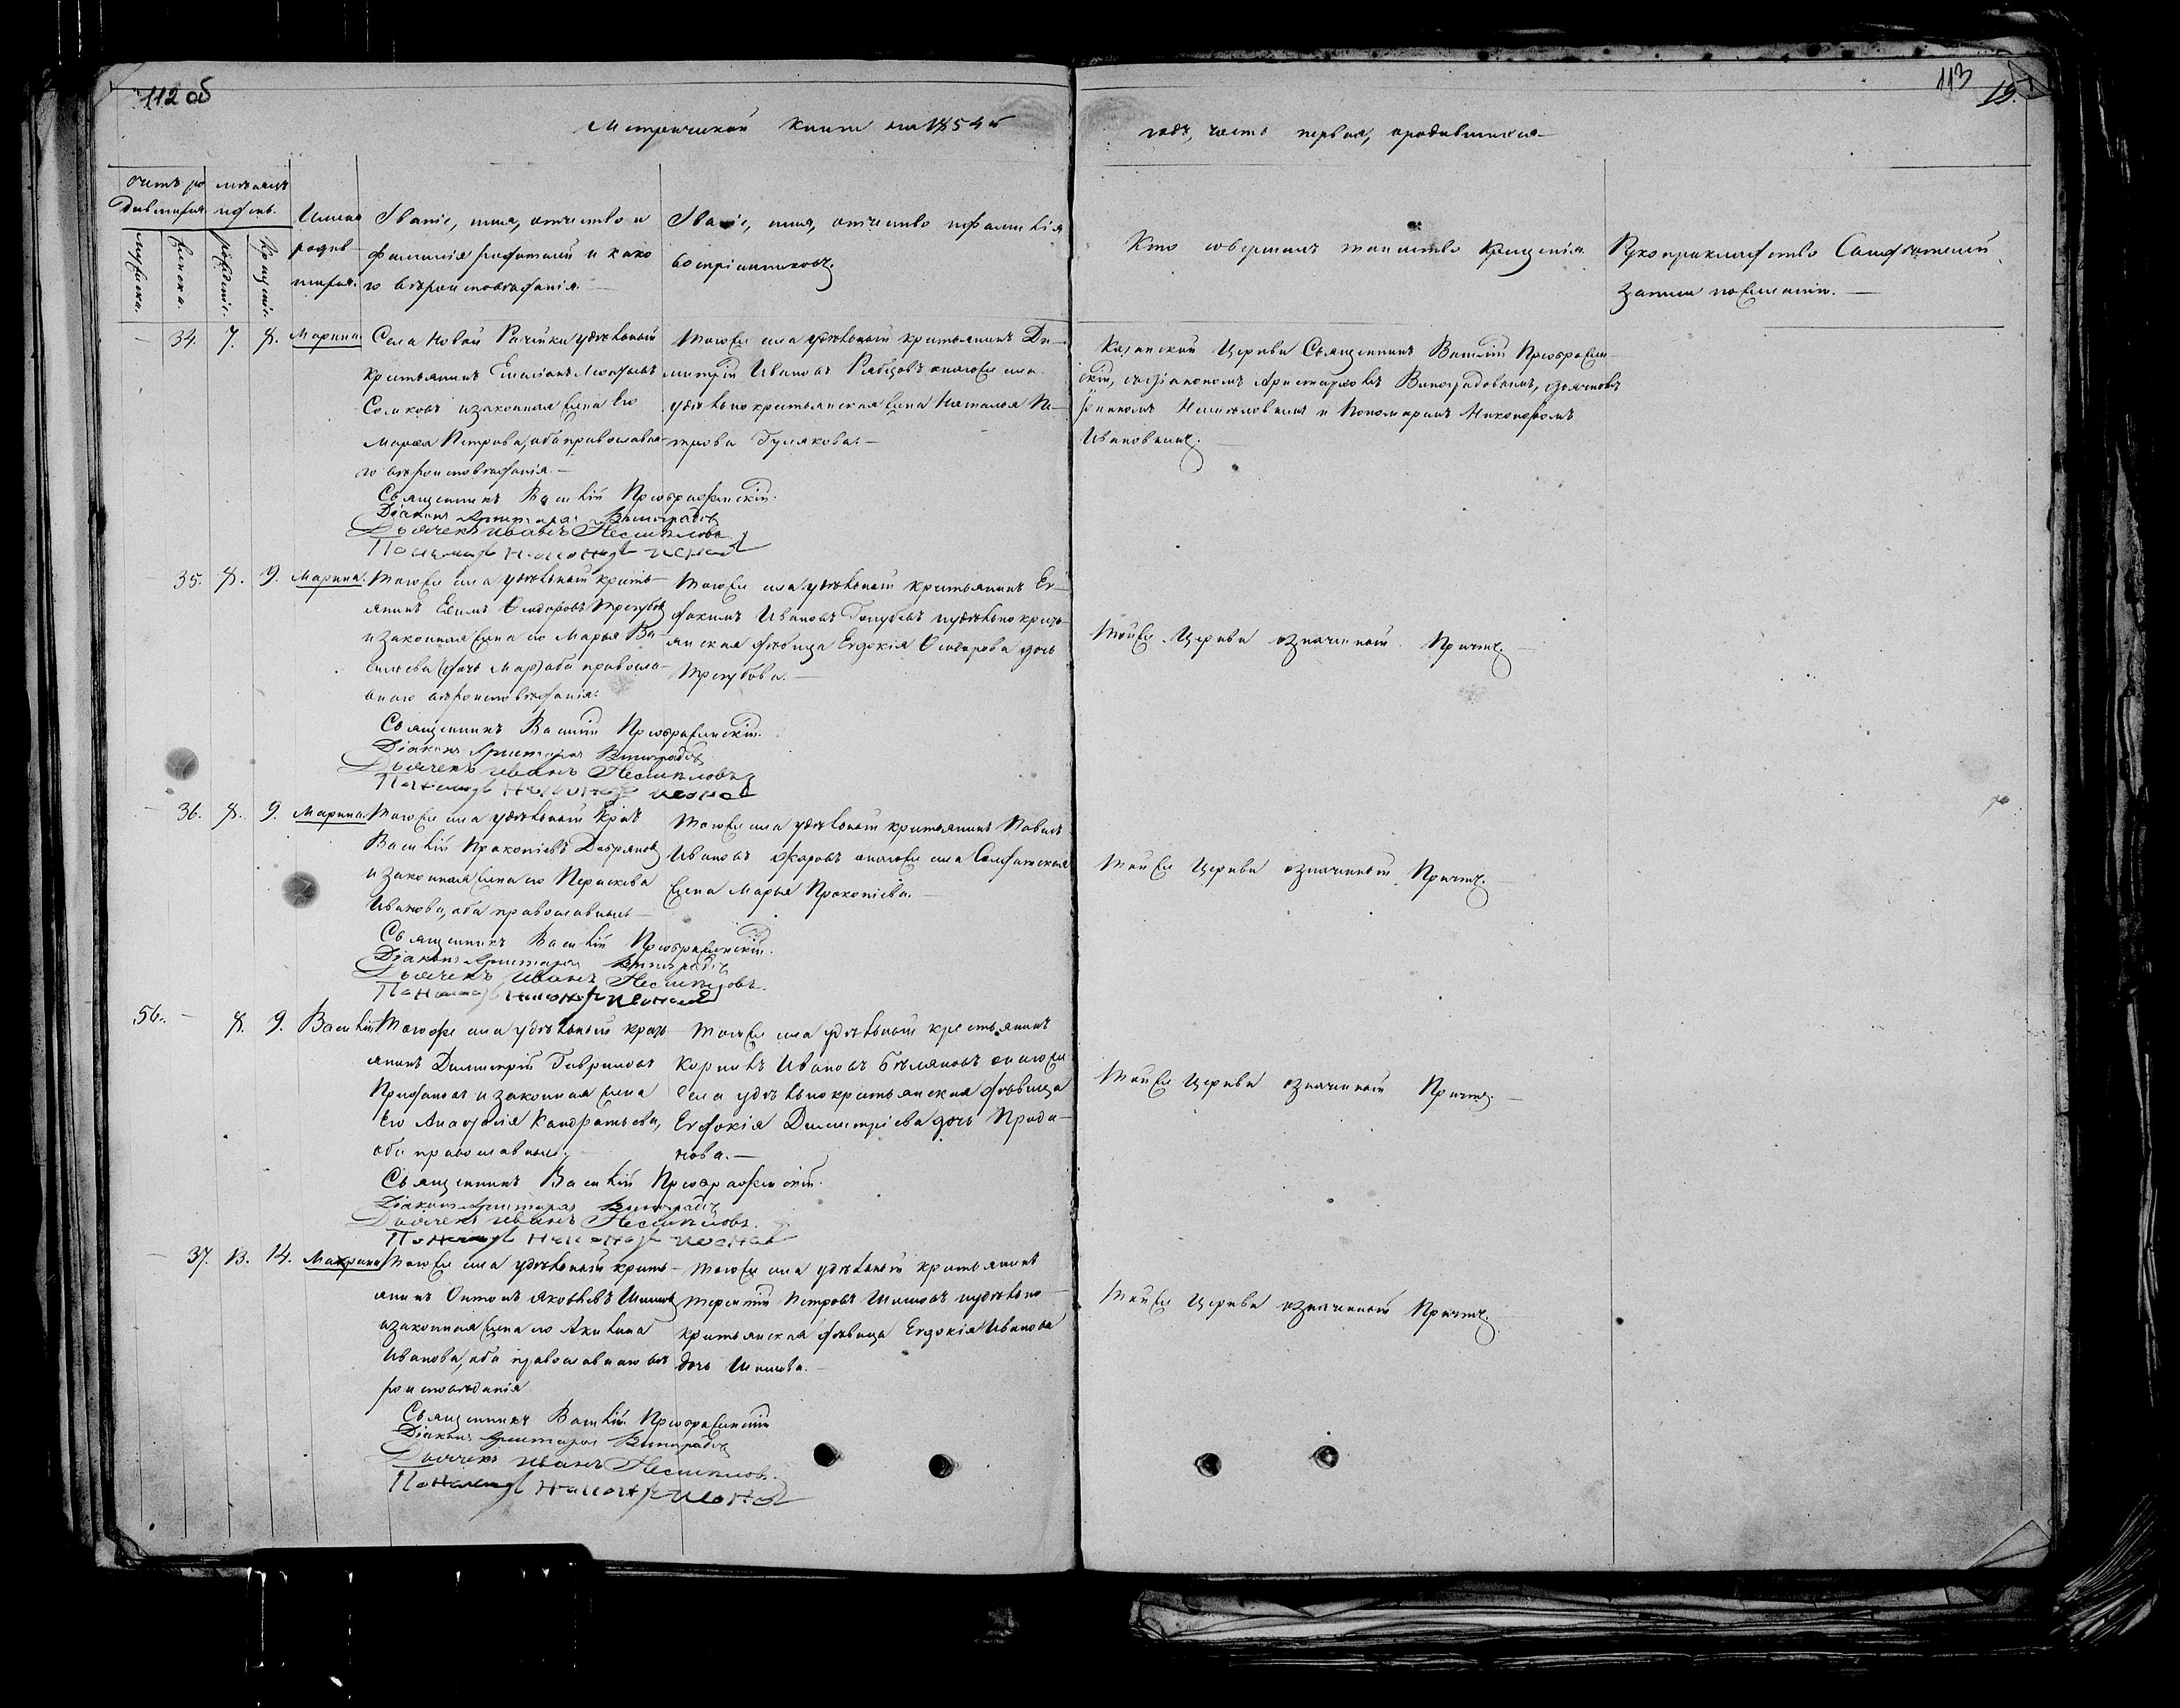 112 об
113
15.
Метрической книги на 1854й
годъ, часть первая, о родившихся
Счетъ ро
дившихся
мужеска.
женска.
мѣсяцъ
и день.
рожденія.
крещенія.
Имена
родив
шихся.
Званіе, имя, отчество и
фамилія родителей и како
го вѣроисповѣданія.
Званіе, имя, отчество и фамилія
воспріемниковъ.
Кто совершалъ таинство крещенія.
Рукоприкладство Свидѣтелей
записи по желанію.
34. 7. 8. Марина.
Села Новой Рачейки удѣльный
крестьянинъ Емельянъ
и законная жена его
Марѳа Петрова, оба православна
го вѣроисповѣданія.
Священникъ Василій Преображенскій.
Діаконъ Аристархъ Виноградовъ
Дьячекъ Иванъ Несмѣловъ
Пономарь Никоноръ
Тогоже села удѣльный крестьянинъ Ди-
митрій Ивановъ и тогоже села
удѣльнокрестьянская жена Наталья Пе-
трова Гулякова.
Казанской Церкви Священникъ Василій Преображен-
скій, съ діакономъ Аристархомъ Виноградовымъ, дьячкомъ
Несмѣловымъ и Пономаремъ Никоноромъ
Ивановымъ.
35. 8. 9. Марина.
Тогоже села удѣльный кресть-
янинъ Ѳеодоровъ Трегубовъ
и законная жена его Марья Ва-
сильева оба правосла-
внаго вѣроисповѣданія.
Священникъ Василій Преображенскій.
Діаконъ Аристархъ Виноградовъ
Дьячекъ Иванъ Несмѣловъ
Пономарь Никоноръ
Тогоже села удѣльный крестьянинъ Ев-
докимъ Ивановъ Голубевъ и удѣльнокресть-
янская дѣвица Евдокія Ѳеодорова дочь
Трегубова.
Тойже Церкви означенный Причтъ.
36. 8. 9. Марина.
Тогоже села удѣльный крест.
Василій Прокопіевъ
и законная жена его Параскева
Иванова, оба православныя
Священникъ Василій Преображенскій.
Діаконъ Аристархъ Виноградовъ
Дьячекъ Иванъ Несмѣловъ.
Пономарь Никоноръ
Тогоже села удѣльный крестьянинъ Павелъ
Ивановъ и тогоже села Солдатская
жена Марья Прокопіева.
Тойже Церкви означенный Причтъ.
56. 8. 9. Василій
Тогоже села удѣльный кресть-
янинъ Димитрій Гавриловъ
и законная жена
его Анастасія Кандратьева,
оба православныя.
Священникъ Василій Преображенскій.
Діаконъ Аристархъ Виноградовъ
Дьячекъ Иванъ Несмѣловъ.
Пономарь Никоноръ
Тогоже села удѣльный крестьянинъ
Ивановъ Бѣляковъ и тогоже
села удѣльнокрестьянская дѣвица
Евдокія Димитріева дочь
нова.
Тойже Церкви означенный Причтъ.
37. 13. 14. Макрина
Тогоже села удѣльный кресть-
янинъ Антонъ Яковлевъ
и законная жена его Акилина
Иванова, оба православнаго вѣ
роисповѣданія
Священникъ Василій Преображенскій
Діаконъ Аристархъ Виноградовъ
Дьячекъ Иванъ Несмѣловъ.
Пономарь Никоноръ
Тогоже села удѣльный крестьянинъ
Терентій Петровъ и удѣльно
крестьянская дѣвица Евдокія Иванова
дочь
Тойже Церкви означенный Причтъ.